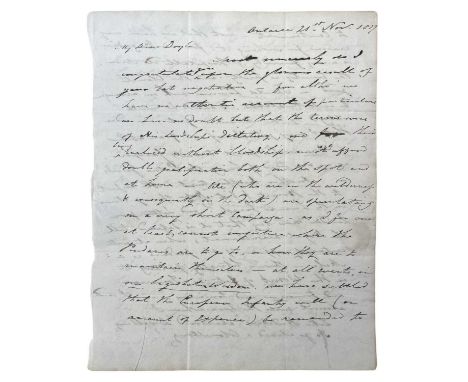 21st Nov 1817
My Dear Doyle
most sincerely do I
congratulate you upon the glorious result of
your last negotiation — for altho' we
have no authentic account of particulars
we have no doubt but that the terms were
of His Lordship's dictating, and this
without bloodshed
double gratification both on the spot and
at home — We (who are in the wilderness
& consequently in the dark) are speculating
on a very short Campaign — as I for one
at least, cannot conjecture where the
Pindaries are to go to, or how they are to
maintain themselves — at all events, in
our we have settled
that the European Infantry will (on
account of expence) be remanded to